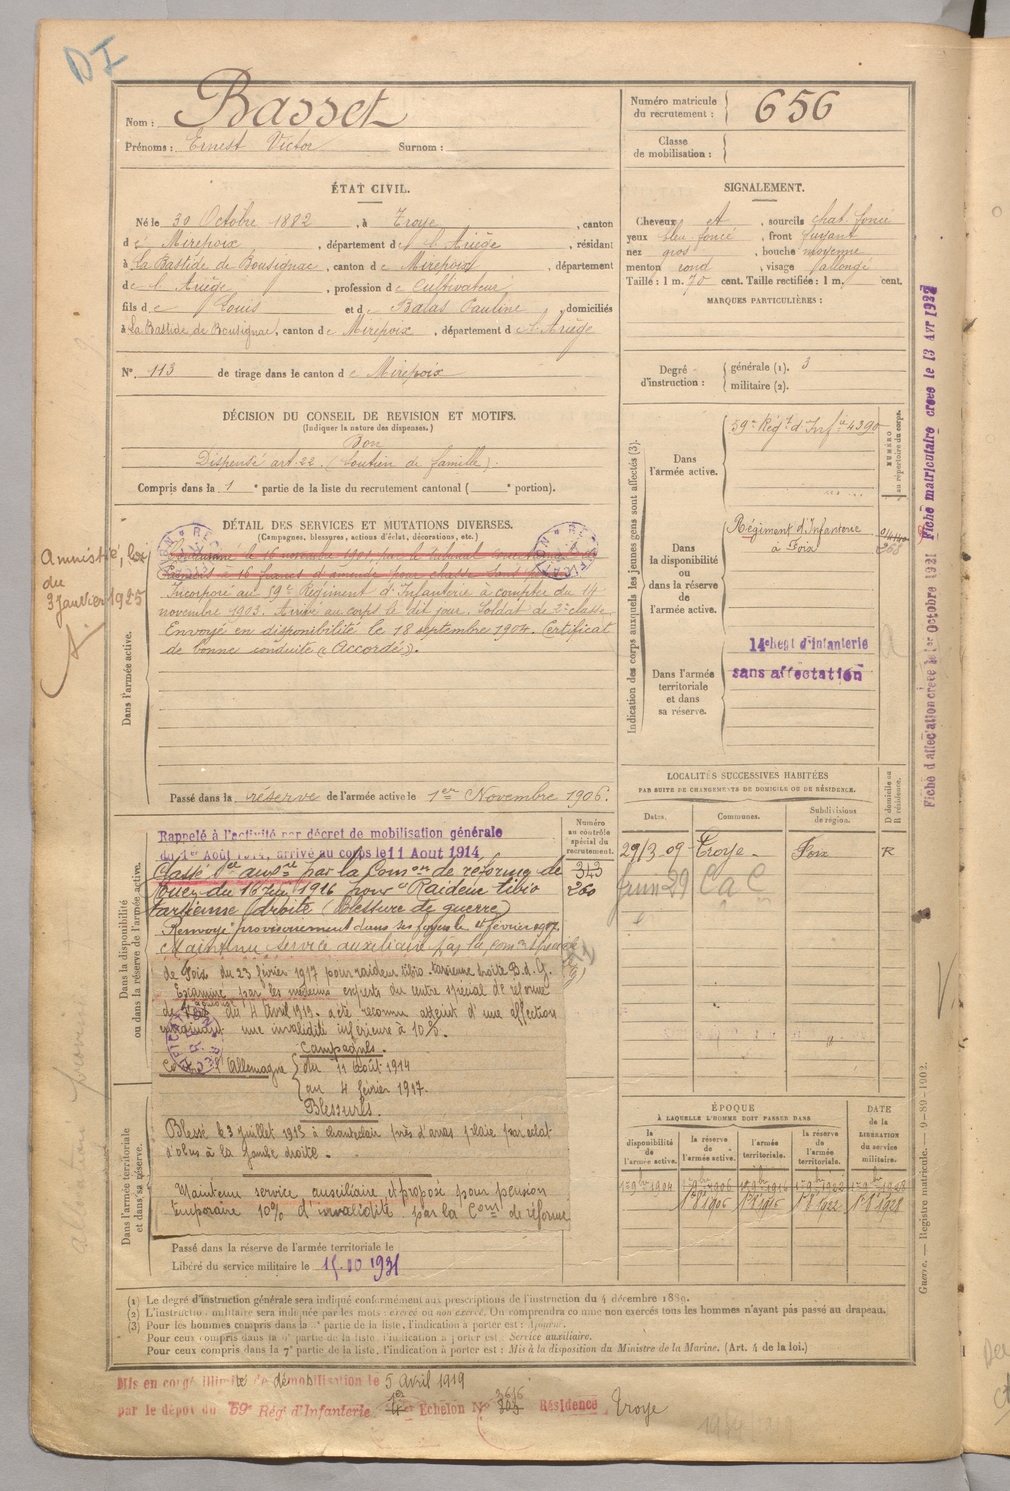 DI
Nom : Basset
Prénoms : Ernest Victor Surnom :
Numéro matricule du recrutement : 656
Classe de mobilisation :
ÉTAT CIVIL.
Né le 30 Octobre 1882, à Troye, canton
de Mirepoix, département de l'Ariège, résidant
à La Bastide de Bousignac, canton de Mirepoix, département
de l'Ariège, profession de Cultivateur,
fils de Louis et de Balas Pauline, domiciliés
à La Bastide de Bousignac, canton de Mirepoix, département de l'Ariège
N° 113 de tirage dans le canton de Mirepoix
SIGNALEMENT.
Cheveux et, sourcils chat. foncé
yeux bleu foncé, front fuyant
nez gros, bouche moyenne
menton rond, visage allongé
Taille : 1 m. 70 cent. Taille rectifiée : 1 m. cent.
MARQUES PARTICULIÈRES :
Degré d'instruction : générale (1). 3
militaire (2).
DÉCISION DU CONSEIL DE REVISION ET MOTIFS.
(Indiquer la nature des dispenses.)
Bon
Dispensé art. 22. (Soutien de famille).
Compris dans la 1e partie de la liste du recrutement cantonal ( e portion).
DÉTAIL DES SERVICES ET MUTATIONS DIVERSES.
(Campagnes, blessures, actions d'éclat, décorations, etc.)
Amnistié, loi
du
3 janvier 1925
Dans l'armée active.
Condamné le 16 novembre 1901 par le Tribunal
à 16 francs d'amende pour chasse sans permis
Incorporé au 59e Régiment d'Infanterie à compter du 14
novembre 1903. Arrivé au corps le dit jour. Soldat de 2e classe.
Envoyé en disponibilité le 18 septembre 1904. Certificat
de bonne conduite « Accordé ».
Passé dans la réserve de l'armée active le 1er Novembre 1906.
Indication des corps auxquels les jeunes gens sont affectés (3).
NUMÉRO au répertoire du corps.
Dans l'armée active.
59e Régt d'Infie 4390
Dans la disponibilité ou dans la réserve de l'armée active.
Régiment d'Infanterie
à Foix
Dans l'armée territoriale et dans sa réserve.
14e Regt d'infanterie
sans affectation
Fiche d'affectation créée le 1er Octobre 1931 Fiche matriculaire créée le 13 Avr 1932
LOCALITÉS SUCCESSIVES HABITÉES
PAR SUITE DE CHANGEMENTS DE DOMICILE OU DE RÉSIDENCE.
D domicile ou R résidence.
Dates. Communes. Subdivisions de région.
29/3 09 Troye Foix R
juin 29 CaC
Dans la disponibilité ou dans la réserve de l'armée active.
Numéro au contrôle spécial du recrutement.
343
260
Rappelé à l'activité par décret de mobilisation générale
du 1er Août 1914, arrivé au corps le 11 Août 1914
Classé Sce auxre par la Comon de réforme de
Rouen du 1916 pour « Raideur tibio
tarsienne droite (Blessure de guerre)
Renvoyé provisoirement dans ses foyers le 4 février 1917
Maintenu service auxiliaire par la Com
de Foix du 23 février 1917 pour raideur tibio-tarsienne droite B. d. G.
Examiné par les médecins experts du centre spécial de réforme
de du 4 Avril 1919. a été reconnu atteint d'une affection
entraînant une invalidité inférieure à 10 %.
Campagnes.
l'Allemagne du 11 août 1914
au 4 février 1917.
Blessures.
Blessé le 3 juillet 1915 à près d'Arras plaie par éclat
d'obus à la jambe droite.
Maintenu service auxiliaire et proposé pour pension
temporaire 10% d'invalidité par la Comon de réforme
Dans l'armée territoriale et dans sa réserve.
Passé dans la réserve de l'armée territoriale le
Libéré du service militaire le 15.10 1931
ÉPOQUE
À LAQUELLE L'HOMME DOIT PASSER DANS
DATE de la LIBÉRATION du service militaire.
la disponibilité de l'armée active. la réserve de l'armée active. l'armée territoriale. la réserve de l'armée territoriale.
1er 9bre 1904 1er 9bre 1906
1er 8bre 1906 1er 8bre 1928
(1) Le degré d'instruction générale sera indiqué conformément aux prescriptions de l'instruction du 4 décembre 1889.
(2) L'instruction militaire sera indiquée par les mots : exercé ou non exercé. On comprendra comme non exercés tous les hommes n'ayant pas passé au drapeau.
(3) Pour les hommes compris dans la partie de la liste, l'indication à porter est : Ajourné.
Pour ceux compris dans la partie de la liste, l'indication à porter est : Service auxiliaire.
Pour ceux compris dans la 7e partie de la liste, l'indication à porter est : Mis à la disposition du Ministre de la Marine. (Art. 4 de la loi.)
Guerre. — Registre matricule. — 9-89-1902.
Mis en congé illimité de démobilisation le 5 avril 1919
par le dépôt du 59e Régt d'Infanterie. Echelon N° 3616 Résidence Troye